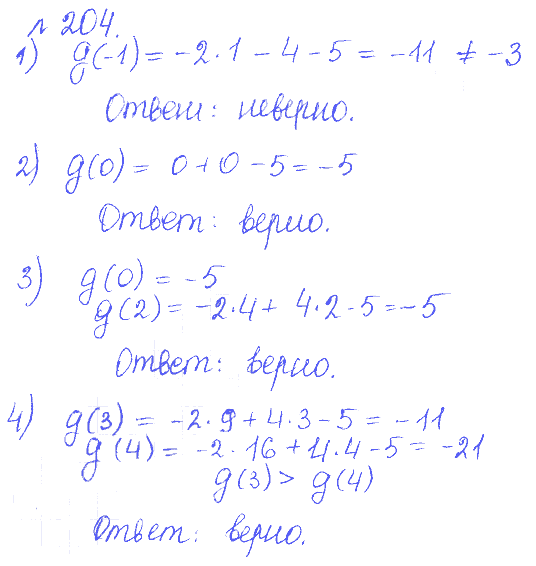 № 204.
1) g(-1) = -2·1 - 4 - 5 = -11 ≠ -3
Ответ: неверно.
2) g(0) = 0 + 0 - 5 = -5
Ответ: верно.
3) g(0) = -5
g(2) = -2·4 + 4·2 - 5 = -5
Ответ: верно.
4) g(3) = -2·9 + 4·3 - 5 = -11
g(4) = -2·16 + 4·4 - 5 = -21
g(3) > g(4)
Ответ: верно.